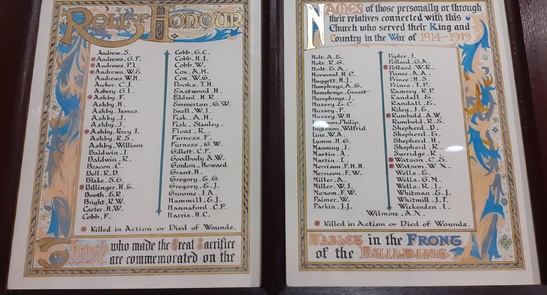 Roll of Honour
Andrew. S.
Andrews. G.F.
Andrews. P.L.
Andrews. W.S.
Andrews. W.H.
Archer. C.J.
Asbery. G.I.
Ashby. F.
Ashby. H.
Ashby. James
Ashby. J.
Ashby. J.
Ashby. Percy J.
Ashby. R.S.
Ashby. William
Baldwin. J.
Baldwin. R.
Beacon. C.
Bell. R.D.
Blake. S.G.
Billinger. H.G.
Booth. E.R.
Bright. R.W.
Carter. H.W.
Cobb. F.
Cobb. G.C.
Cobb. H.J.
Cobb. W.
Cox. A.H.
Cox. W.G.
Dooks. T.H.
Eastwood. H.
Eldred. H.R.
Emmerton. G.W.
Fisk. A.H.
Fisk. Stanley.
Float. R.
Furness. F.
Furness. G.W.
Gillett. C.F.
Goodbody. A.W.
Gordon. Howard
Grant. H.
Gregory. E.G.
Gregory. E.J.
Groome. J.A.
Hammill. E.J.
Hannaford. C.F.
Harris. H.C.
Killed in Action or Died of Wounds.
Those who made the Great Sacrifice
are commemorated on the
Names of those personally or through
their relatives connected with this
Church who served their King and
Country in the War of 1914-1919
Holt. A.E.
Holt. R.G.
Holt. E.A.
Horwood. H.C.
Huggett. H.J.
Humphreys. A.G.
Humphreys. Ernest
Humphreys. J.
Hussey. E.C.
Hussey. F.
Hussey. W.H.
Philip.
Ingleson. Wilfrid
Line. W.A.
Lumm. H.G.
Manning. J.
Martin. A.
Martin. I.
Merrison. F.H.H.
Merrison. F.W.
Miller. A.
Miller. W.J.
Noxon. F.W.
Palmer. W.
Parkin. J.J.
Pepler. J.
Pollard. G.A.
Pollard. W.R.
Prince. A.A.
Prince. H.S.
Prince. T.P.
Ramsey. R.P.
Randall. E.
Randall. E.
Riley. J.E.
Rumbold. A.W.
Rumbold. R.S.
Shepherd. D.
Shepherd. E.
Shepherd. H.
Shepherd. R.
Surridge. R.
Watson. C.S.
Watson. W.N.
Wells. E.
Wells. G.N.
Wells. R.J.
Whitman. E.J.
Whitmill. J.T.
Wickenden. L.
Wilmore. A.N.
Killed in Action or Died of Wounds.
Tablet in the Front
of the Building.